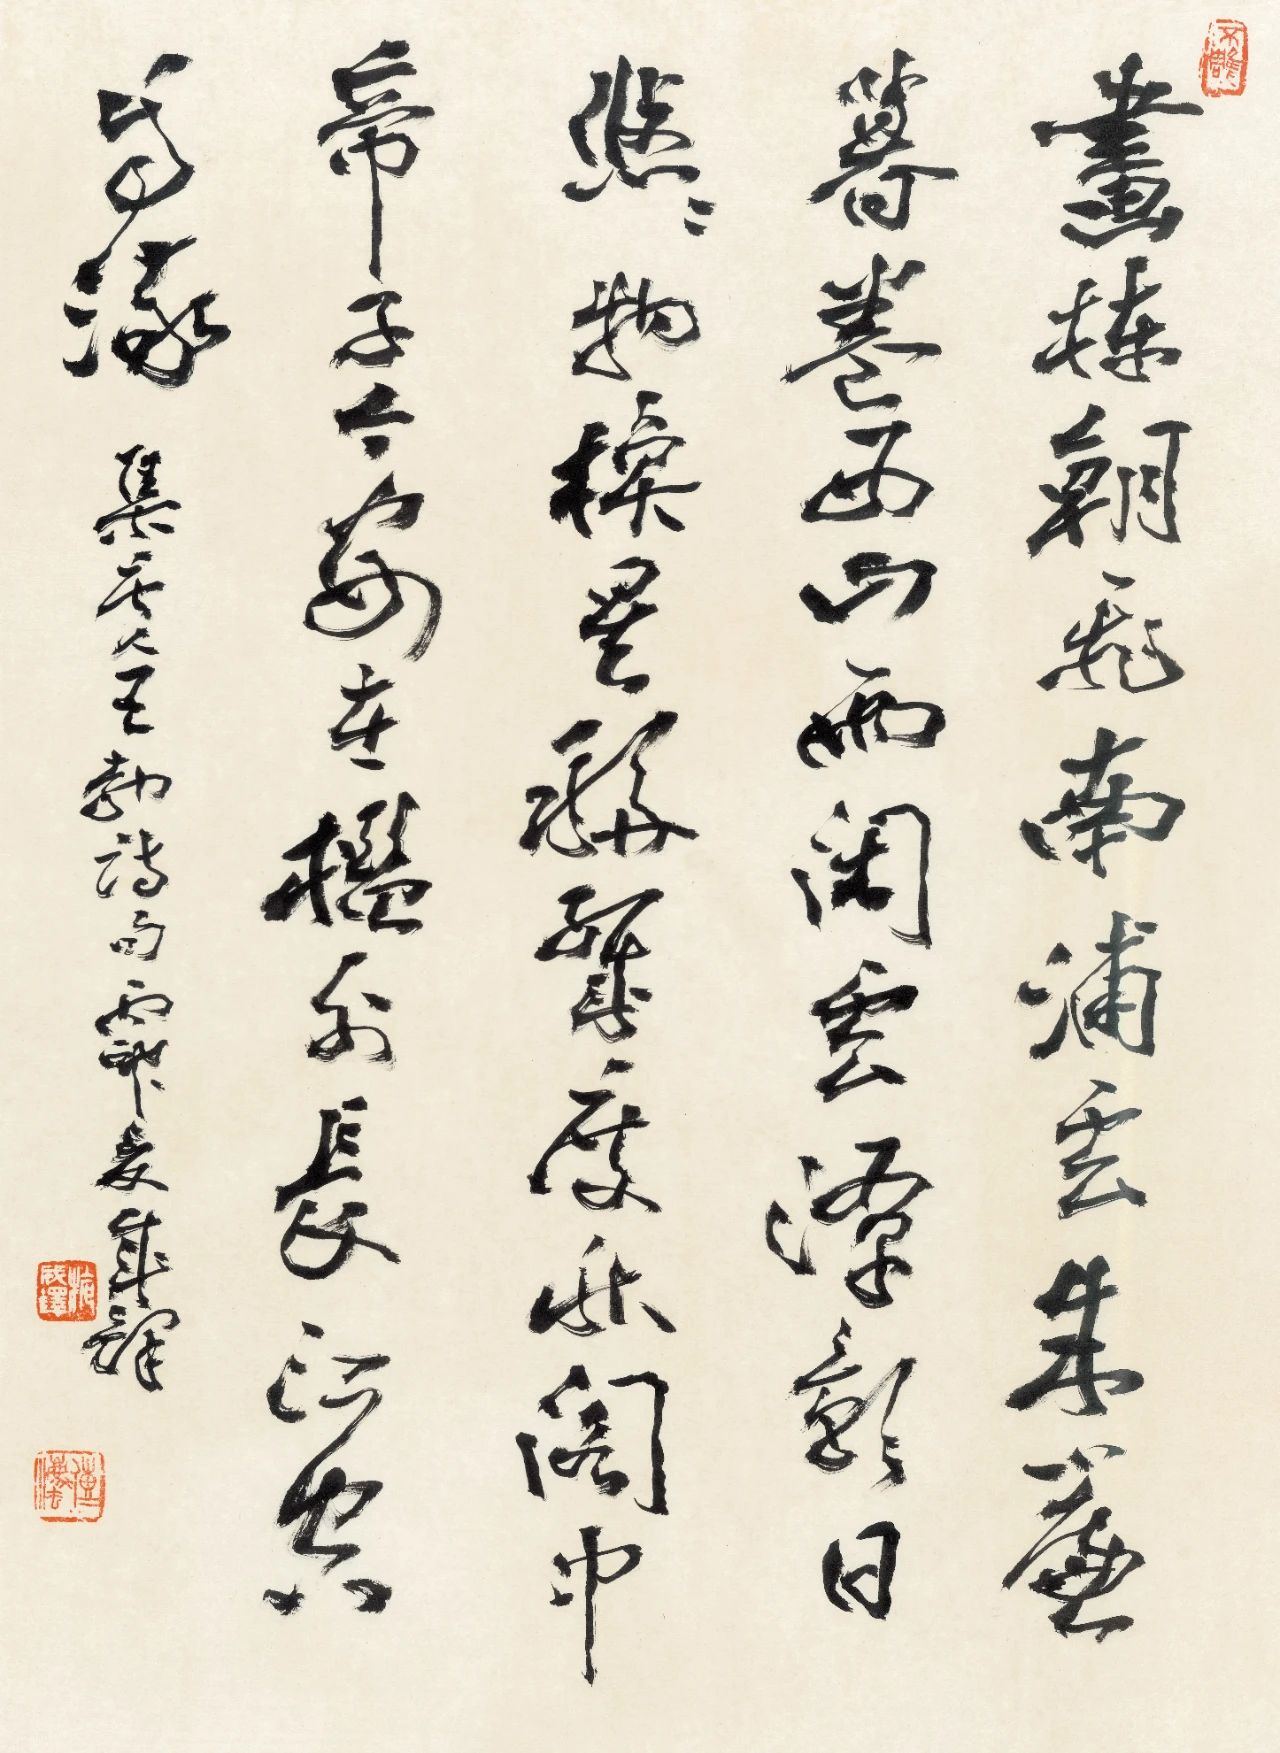 畫棟朝飛南浦雲朱簾
暮卷西山雨閑雲潭影日
悠〻物換星移幾度秋閣中
帝子今安在檻外長江空
自流 集唐人王勃詩句 夏